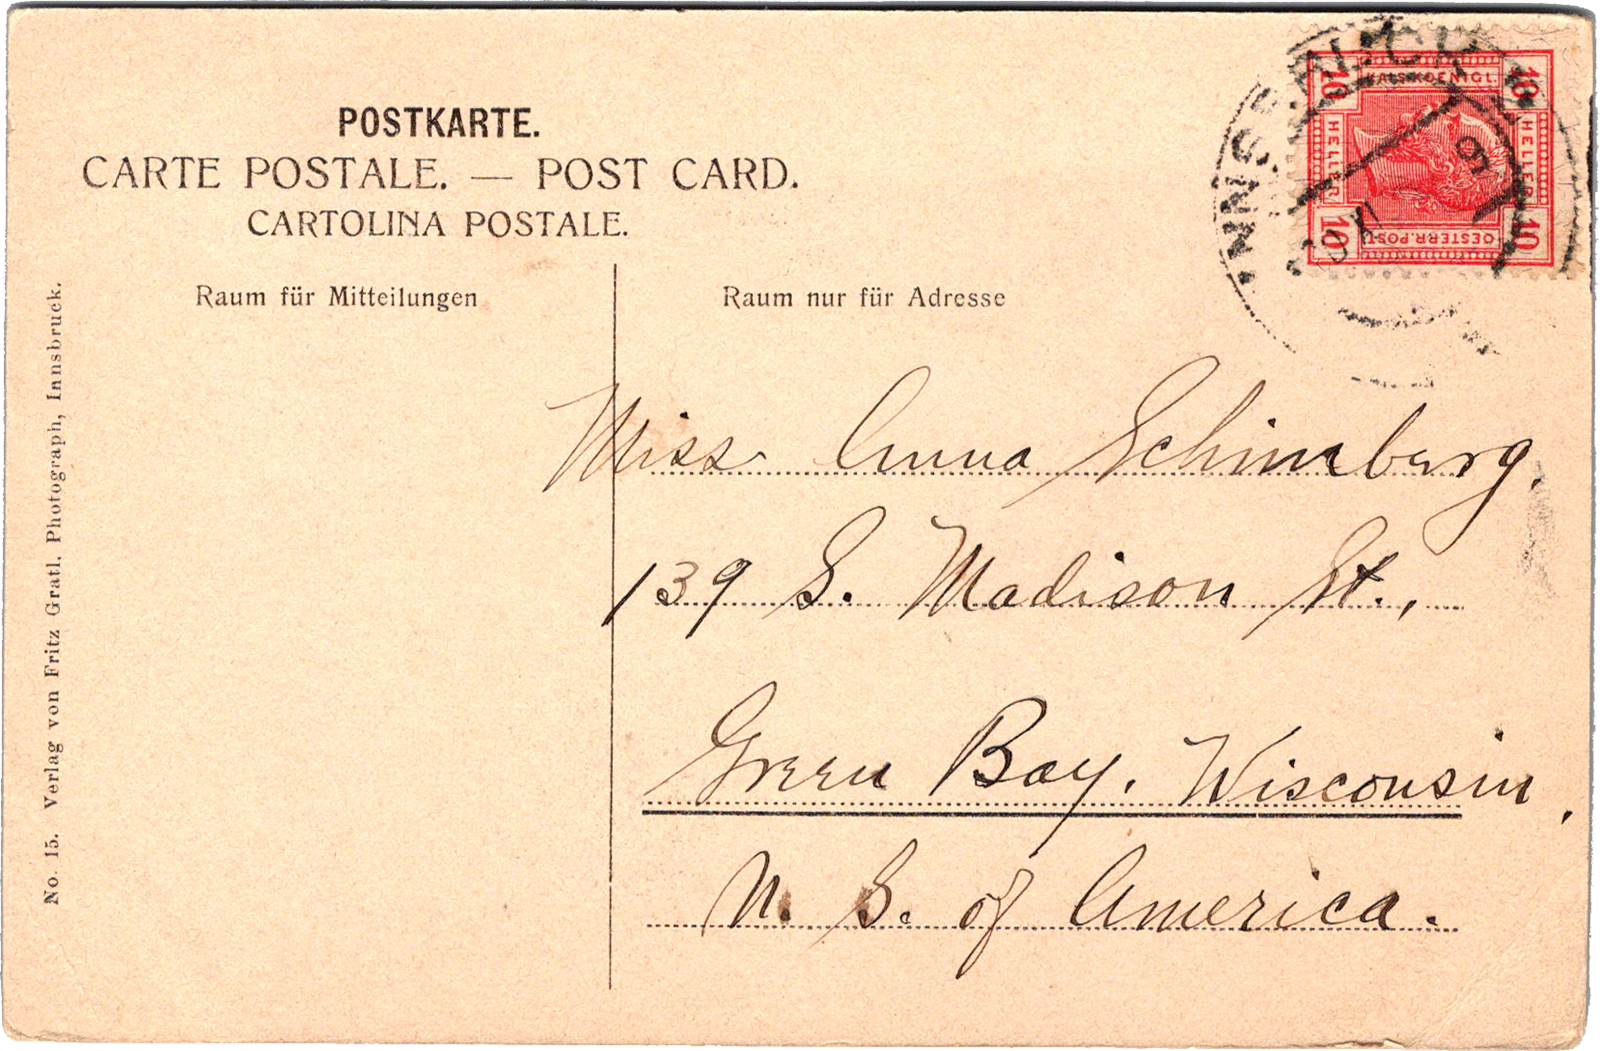 POSTKARTE.
CARTE POSTALE. — POST CARD.
CARTOLINA POSTALE.
Raum für Mitteilungen
Raum nur für Adresse
INNSBRUCK
KAIS.KOENIGL.
10 10
HELLER HELLER
10 10
OESTERR.POST
Miss Anna Schimberg,
139 S. Madison St.,
Green Bay, Wisconsin,
U. S. of America.
No. 15. Verlag von Fritz Gratl. Photograph, Innsbruck.